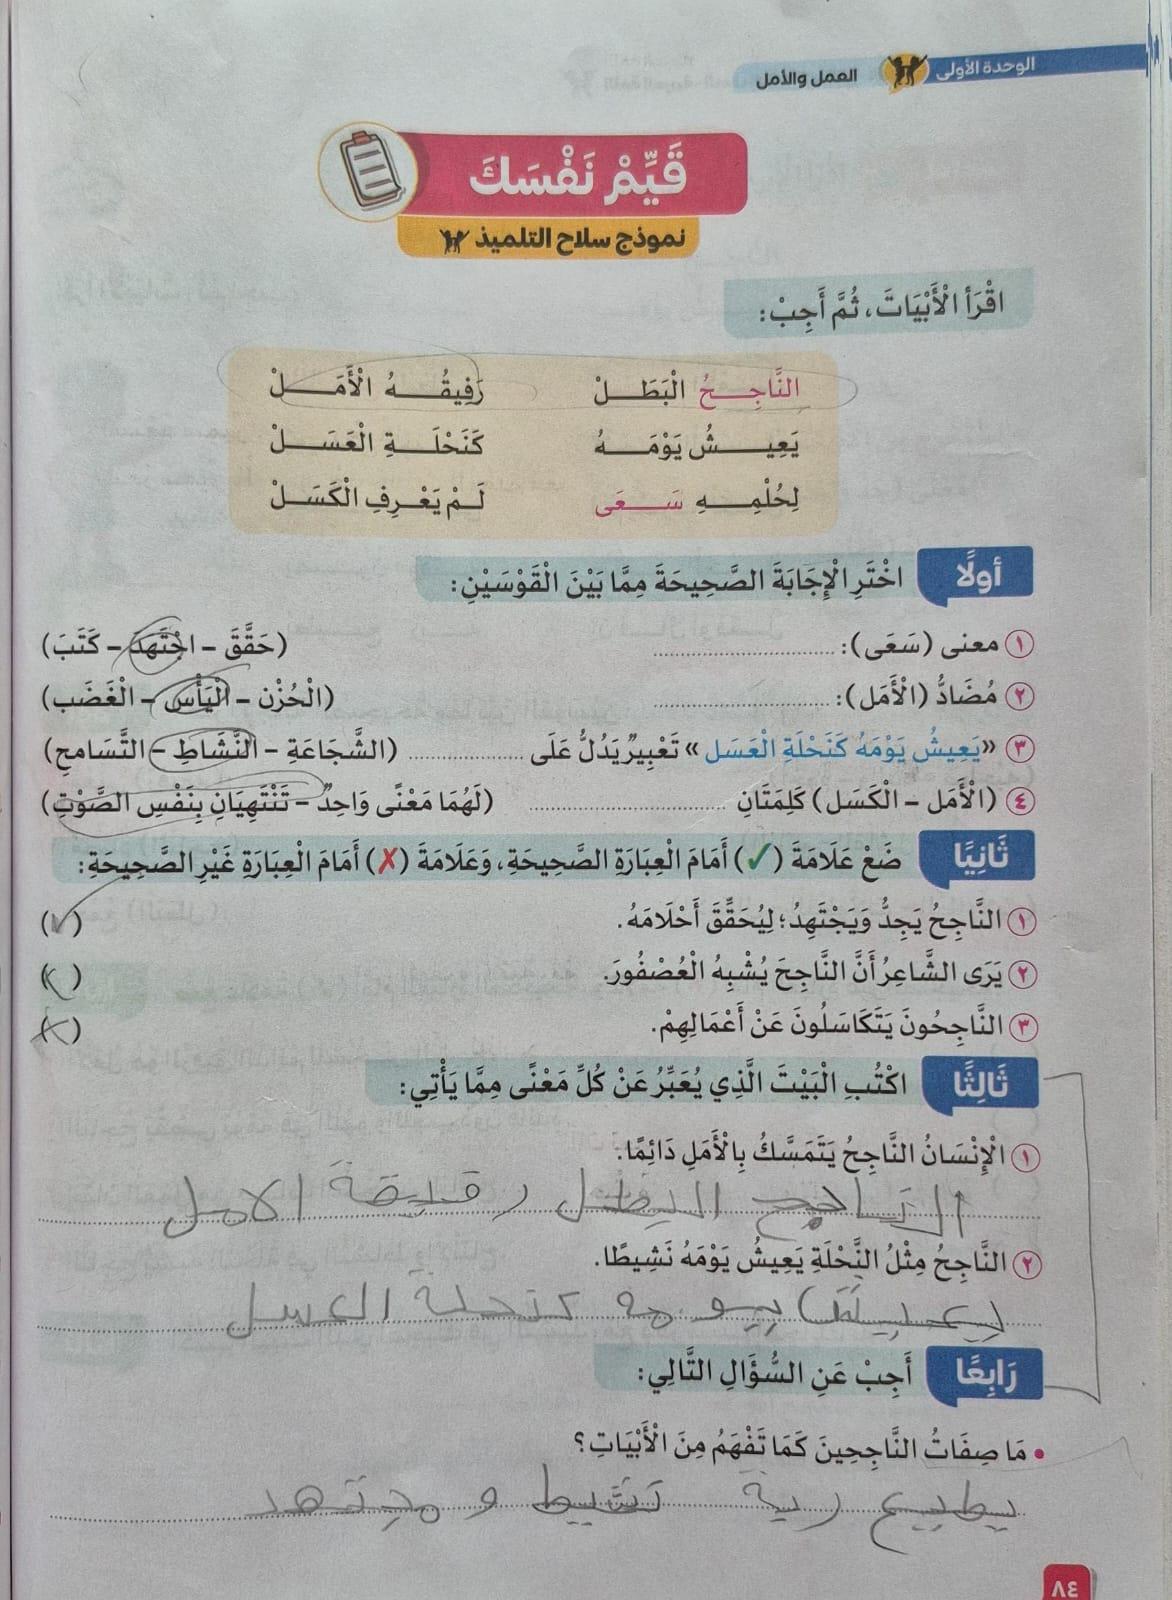 الوحدة الأولى العمل والأمل
قَيِّمْ نَفْسَكَ
نموذج سلاح التلميذ
اقْرَأ الْأَبْيَاتَ، ثُمَّ أَجِبْ:
النَّاجِـحُ الْبَطَـلْ رَفِيقُـهُ الْأَمَـلْ
يَعِيـشُ يَوْمَـهُ كَنَحْلَـةِ الْعَسَـلْ
لِحُلْمِـهِ سَـعَى لَـمْ يَعْـرِفِ الْكَسَـلْ
أولًا اخْتَرِ الْإِجَابَةَ الصَّحِيحَةَ مِمَّا بَيْنَ الْقَوْسَيْنِ:
١ معنى (سَعَى): .................... (حَقَّقَ – اجْتَهَدَ – كَتَبَ)
٢ مُضَادُّ (الْأَمَل): .................... (الْحُزْن – الْيَأْس – الْغَضَب)
٣ «يَعِيشُ يَوْمَهُ كَنَحْلَةِ الْعَسَل» تَعْبِيرٌ يَدُلُّ عَلَى .................... (الشَّجَاعَةِ – النَّشَاطِ – التَّسَامحِ)
٤ (الْأَمَل – الْكَسَل) كَلِمَتَانِ .................... (لَهُمَا مَعْنًى وَاحِدٌ – تَنْتَهِيَانِ بِنَفْسِ الصَّوْتِ)
ثَانِيًا ضَعْ عَلَامَةَ (✓) أَمَامَ الْعِبَارَةِ الصَّحِيحَةِ، وَعَلَامَةَ (✗) أَمَامَ الْعِبَارَةِ غَيْرِ الصَّحِيحَةِ:
١ النَّاجِحُ يَجِدُّ وَيَجْتَهِدُ؛ لِيُحَقِّقَ أَحْلَامَهُ. (✓)
٢ يَرَى الشَّاعِرُ أَنَّ النَّاجِحَ يُشْبِهُ الْعُصْفُورَ. ( )
٣ النَّاجِحُونَ يَتَكَاسَلُونَ عَنْ أَعْمَالِهِمْ. (✗)
ثَالِثًا اكْتُبِ الْبَيْتَ الَّذِي يُعَبِّرُ عَنْ كُلِّ مَعْنًى مِمَّا يَأْتِي:
١ الْإِنْسَانُ النَّاجِحُ يَتَمَسَّكُ بِالْأَمَلِ دَائِمًا.
الناجح البطل رفيقة الامل
٢ النَّاجِحُ مِثْلُ النَّحْلَةِ يَعِيشُ يَوْمَهُ نَشِيطًا.
يعيش يومه كنحلة العسل
رَابِعًا أَجِبْ عَنِ السُّؤَالِ التَّالِي:
• مَا صِفَاتُ النَّاجِحِينَ كَمَا تَفْهَمُ مِنَ الْأَبْيَاتِ؟
يطيع ربة نشيط و مجتهد
٨٤